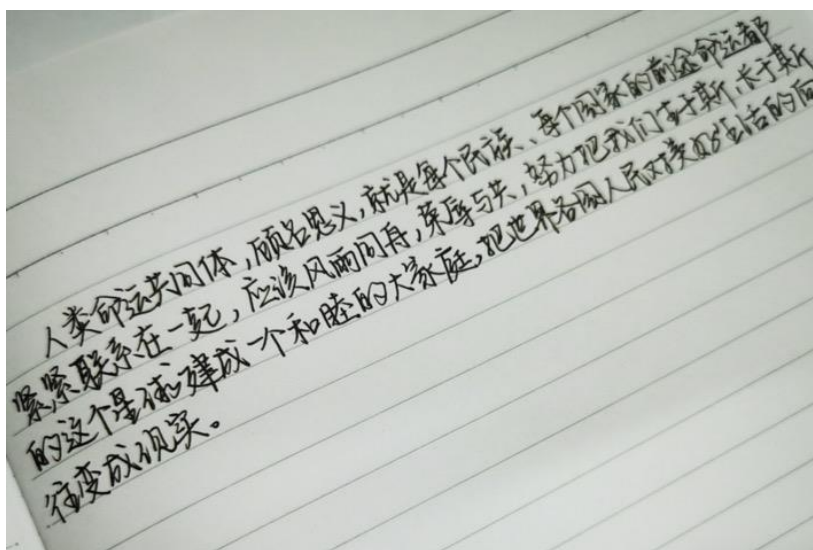 人类命运共同体，顾名思义，就是每个民族、每个国家的前途命运都
紧紧联系在一起，应该风雨同舟，荣辱与共，努力把我们生于斯、长于斯
的这个星球建成一个和睦的大家庭，把世界各国人民对美好生活的向
往变成现实。